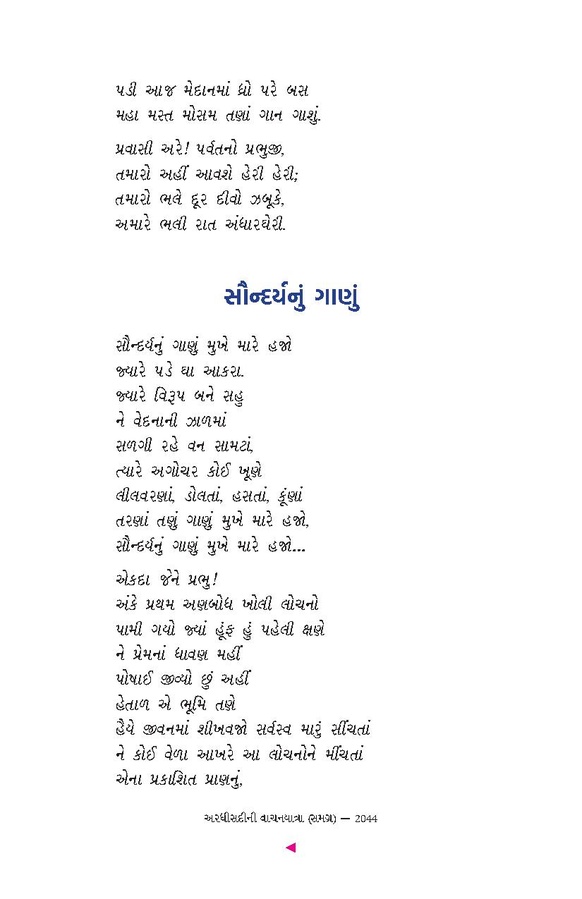 પડી આજ મેદાનમાં ધ્રો પરે બસ
મહા મસ્ત મોસમ તણાં ગાન ગાશું.
પ્રવાસી અરે! પર્વતનો પ્રભુજી,
તમારો અહીં આવશે હેરી હેરી;
તમારો ભલે દૂર દીવો ઝબૂકે,
અમારે ભલી રાત અંધારઘેરી.
સૌન્દર્યનું ગાણું
સૌન્દર્યનું ગાણું મુખે મારે હજો
જ્યારે પડે ઘા આકરા.
જ્યારે વિરૂપ બને સહુ
ને વેદનાની ઝાળમાં
સળગી રહે વન સામટાં,
ત્યારે અગોચર કોઈ ખૂણે
લીલવરણાં, ડોલતાં, હસતાં, કૂંણાં
તરણાં તણું ગાણું મુખે મારે હજો,
સૌન્દર્યનું ગાણું મુખે મારે હજો...
એકદા જેને પ્રભુ!
અંકે પ્રથમ અણબોધ ખોલી લોચનો
પામી ગયો જ્યાં હૂંફ હું પહેલી ક્ષણે
ને પ્રેમનાં ધાવણ મહીં
પોષાઈ જીવ્યો છું અહીં
હેતાળ એ ભૂમિ તણે
હૈયે જીવનમાં શીખવજો સર્વસ્વ મારું સીંચતાં
ને કોઈ વેળા આખરે આ લોચનોને મીંચતાં
એના પ્રકાશિત પ્રાણનું,
અરધીસદીની વાચનયાત્રા (સમગ્ર) — 2044